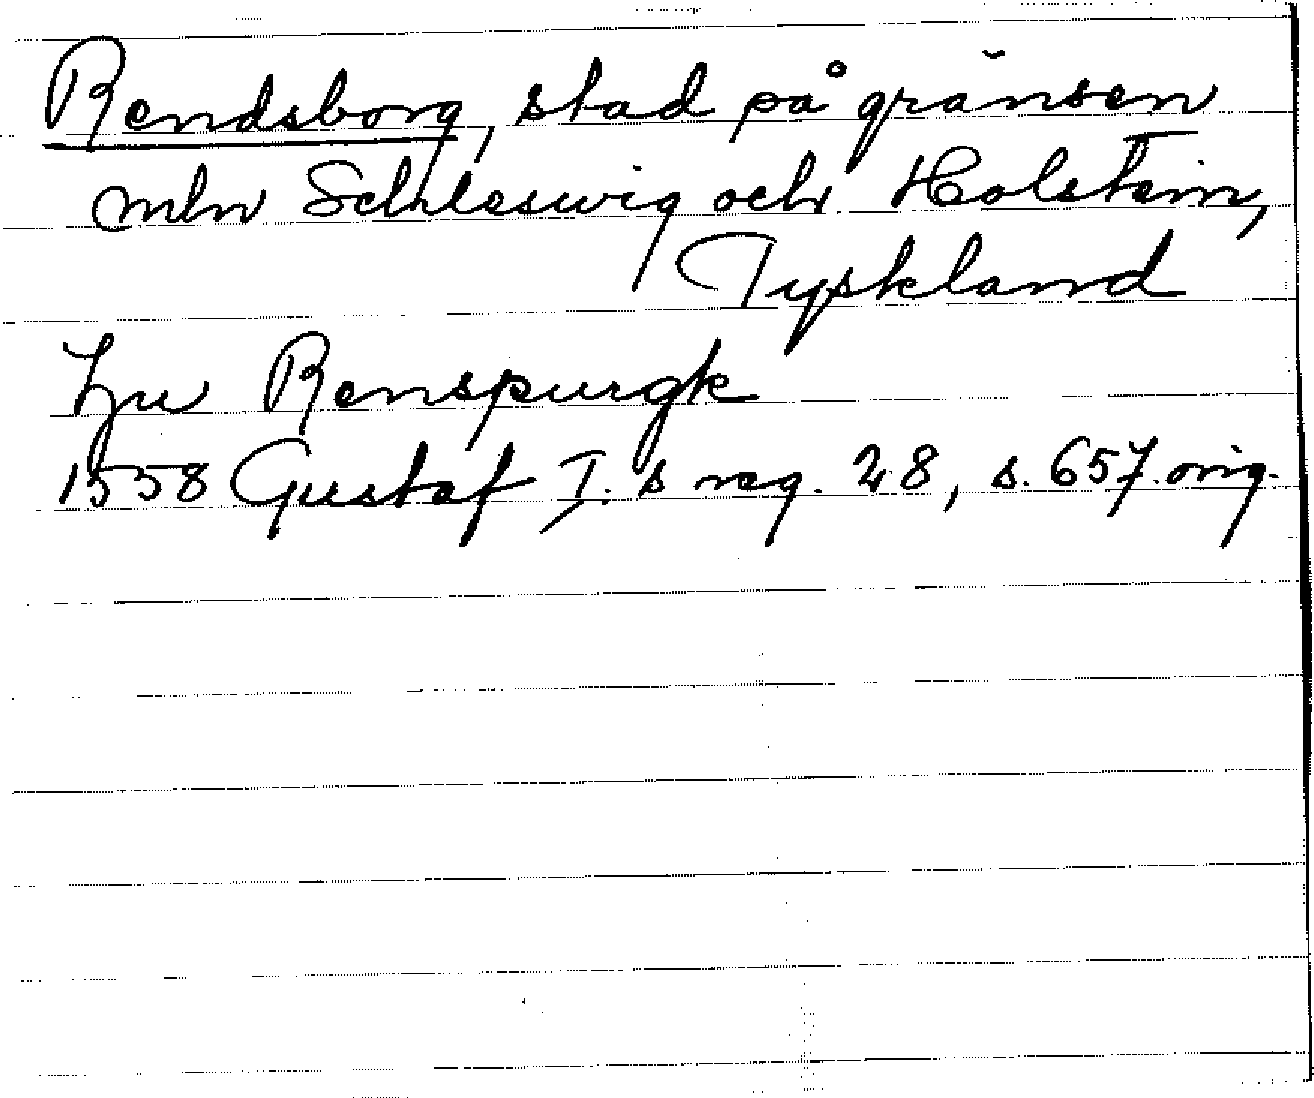 Rendsborg, stad på gränsen
mln Schleswig och Holstein,
Tyskland
Zu Renspurgk
1558 Gustaf I. s reg. 28, s. 657. orig.